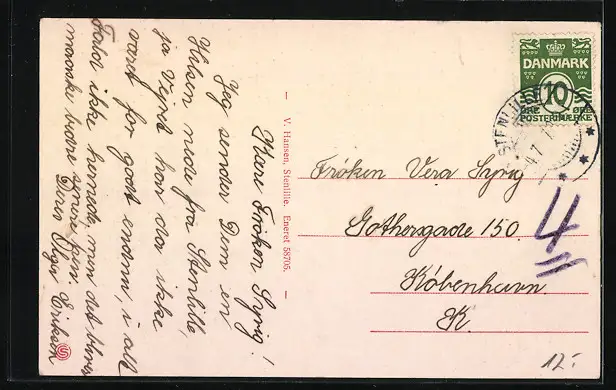 Kære Frøken Syrig!
Jeg sender Dem en
Hilsen nede fra Stenlille,
ja Vejret har da ikke
været for godt endnu, i alt
Fald ikke hernede, men det bliver
maaske bedre senere hen.
Deres Olga Erikson
V. Hansen, Stenlille. Eneret 58705.
DANMARK
10
ØRE ØRE
POSTFRIMÆRKE
STENLILLE
Frøken Vera Syrig
Gothersgade 150.
København
K.
4
12.-